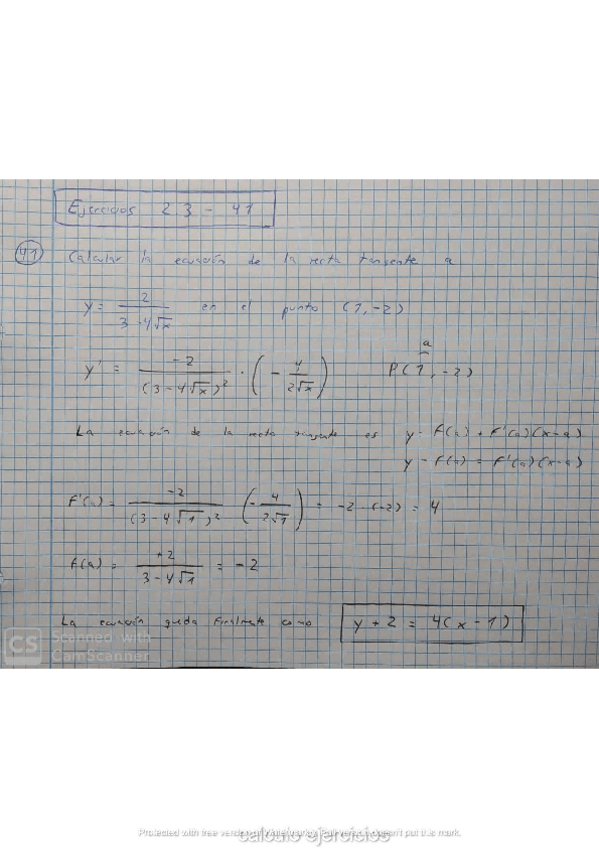 Ejercicios 2.3 - 41
41 Calcular la ecuación de la recta tangente a
y = 2 / (3 - 4√x) en el punto (1, -2)
y' = -2 / (3 - 4√x)² · (- 4 / 2√x) P(1, -2) a
La ecuación de la recta tangente es y = f(a) + f'(a)(x-a)
y - f(a) = f'(a)(x-a)
f'(a) = -2 / (3 - 4√1)² (- 4 / 2√1) = -2 · (-2) = 4
f(a) = +2 / (3 - 4√1) = -2
La ecuación queda finalmente como y + 2 = 4(x - 1)
CS Scanned with
CamScanner
Protected with free version of Watermarkly. Full version doesn't put this mark.
calculo ejercicios